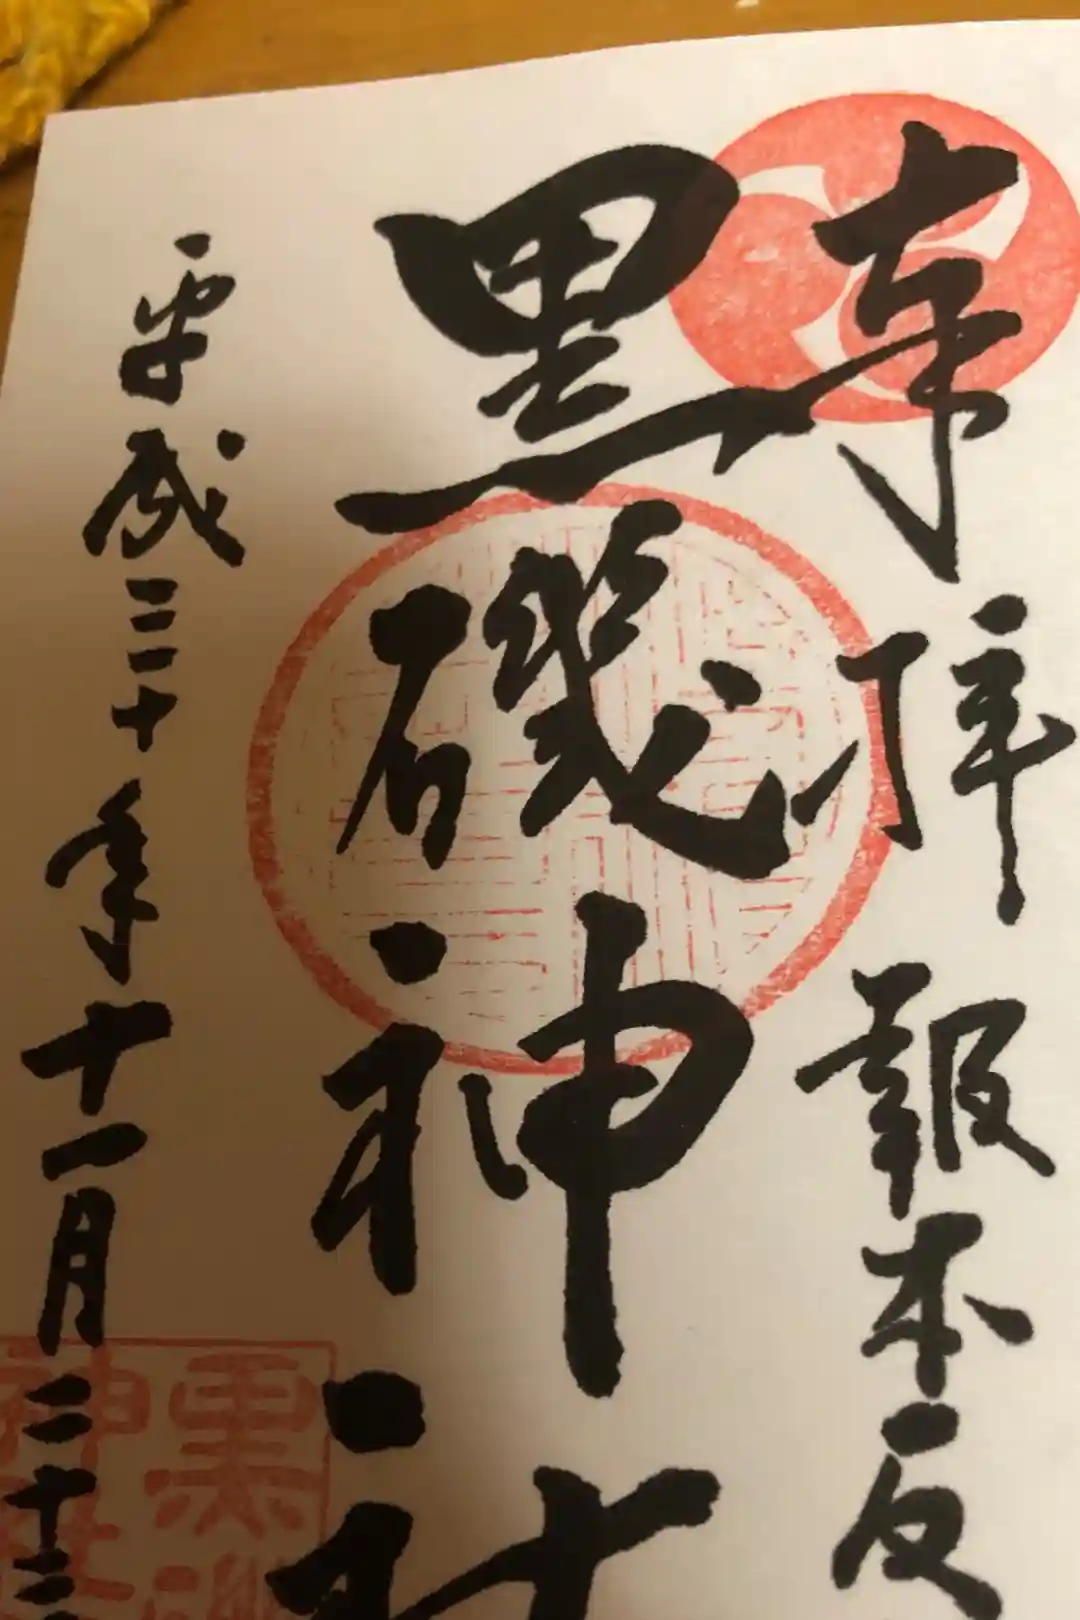 奉拝 報本反
黒磯神社
平成三十年十一月二十三
黒磯
神社